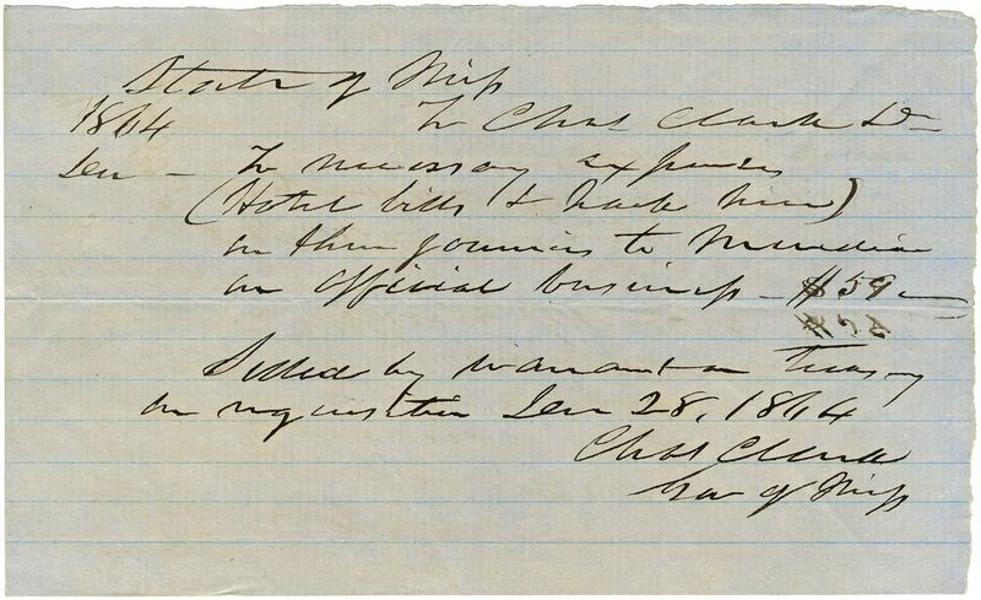 State of Miss
1864 To Chas Clark Dr
Dec - To necessary expenses
(Hotel bills & hack hire)
on three journies to Meridian
on official business - $59 -
Settled by warrant on Treasy
on requisition Dec 28, 1864
Chas Clark
Gov of Miss